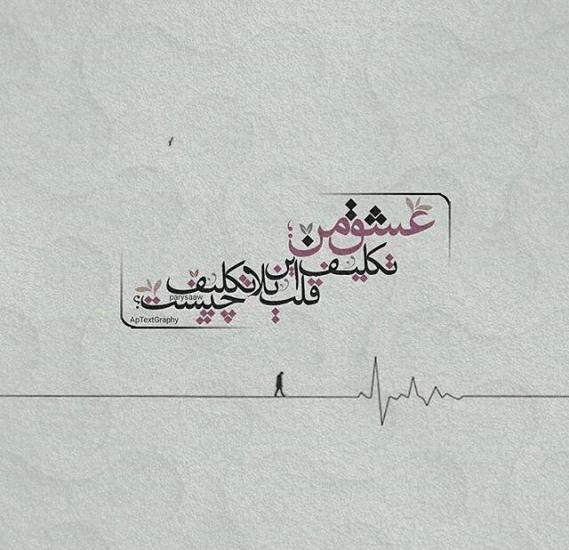 عشق من؛
تکلیف این
قلب بلاتکلیف
چیست؟
parysaaw
ApTextGraphy